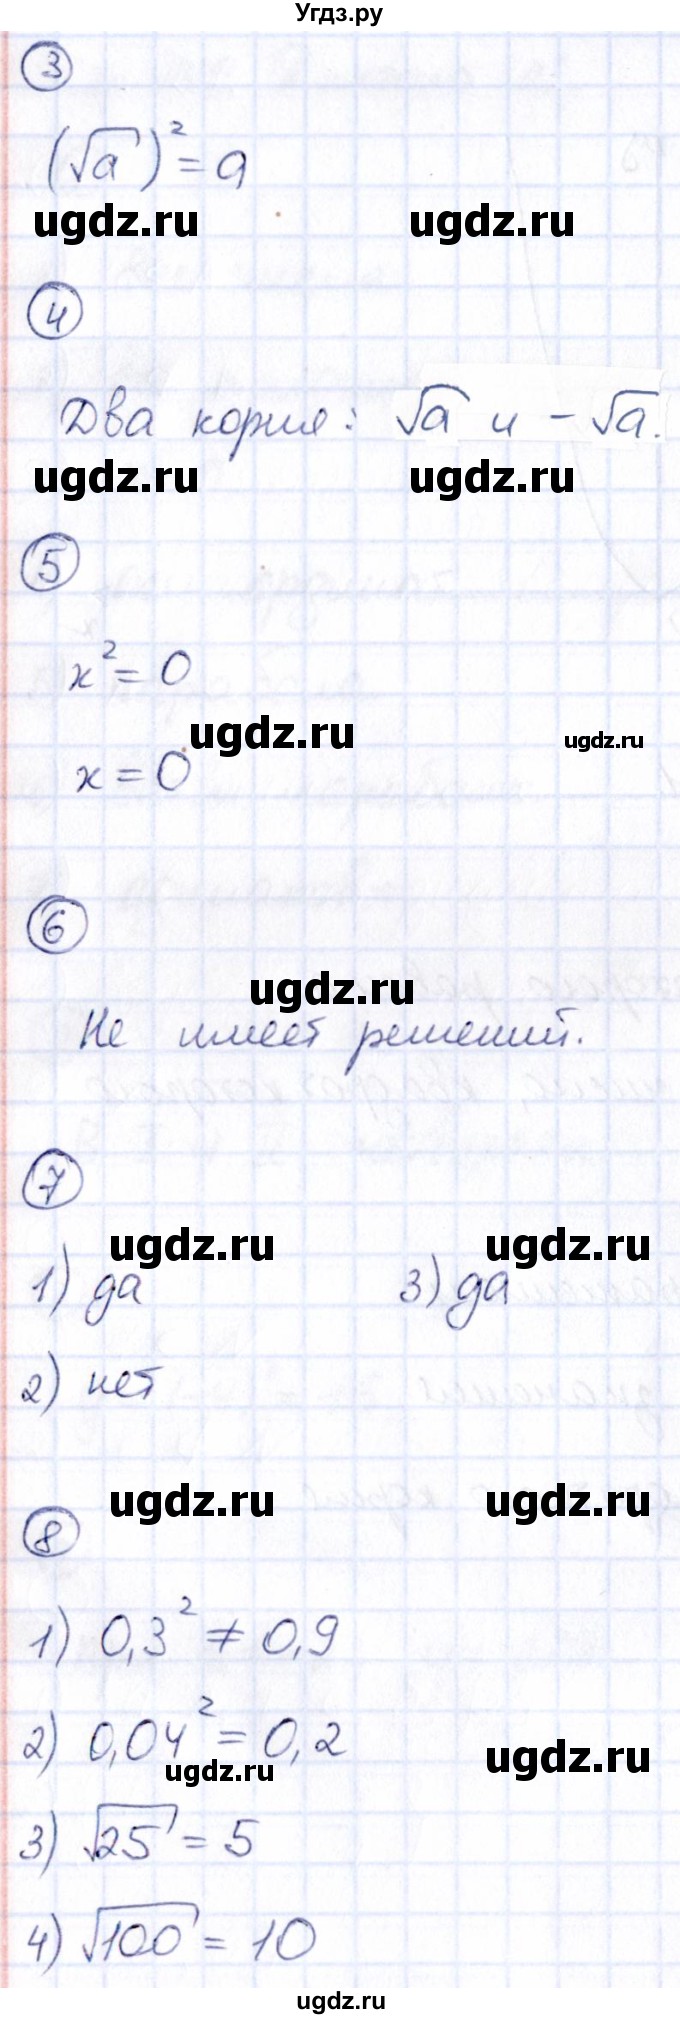 Угдз.ру
3
(√a)² = a
ugdz.ru ugdz.ru
4
Два корня: √a и -√a.
ugdz.ru ugdz.ru
5
x² = 0
ugdz.ru ugdz.ru
x = 0
6
ugdz.ru
Не имеет решений.
7
ugdz.ru ugdz.ru
1) да 3) да
2) нет
ugdz.ru ugdz.ru
8
1) 0,3² ≠ 0,9
2) 0,04² = 0,2
ugdz.ru ugdz.ru
3) √25 = 5
4) √100 = 10
ugdz.ru